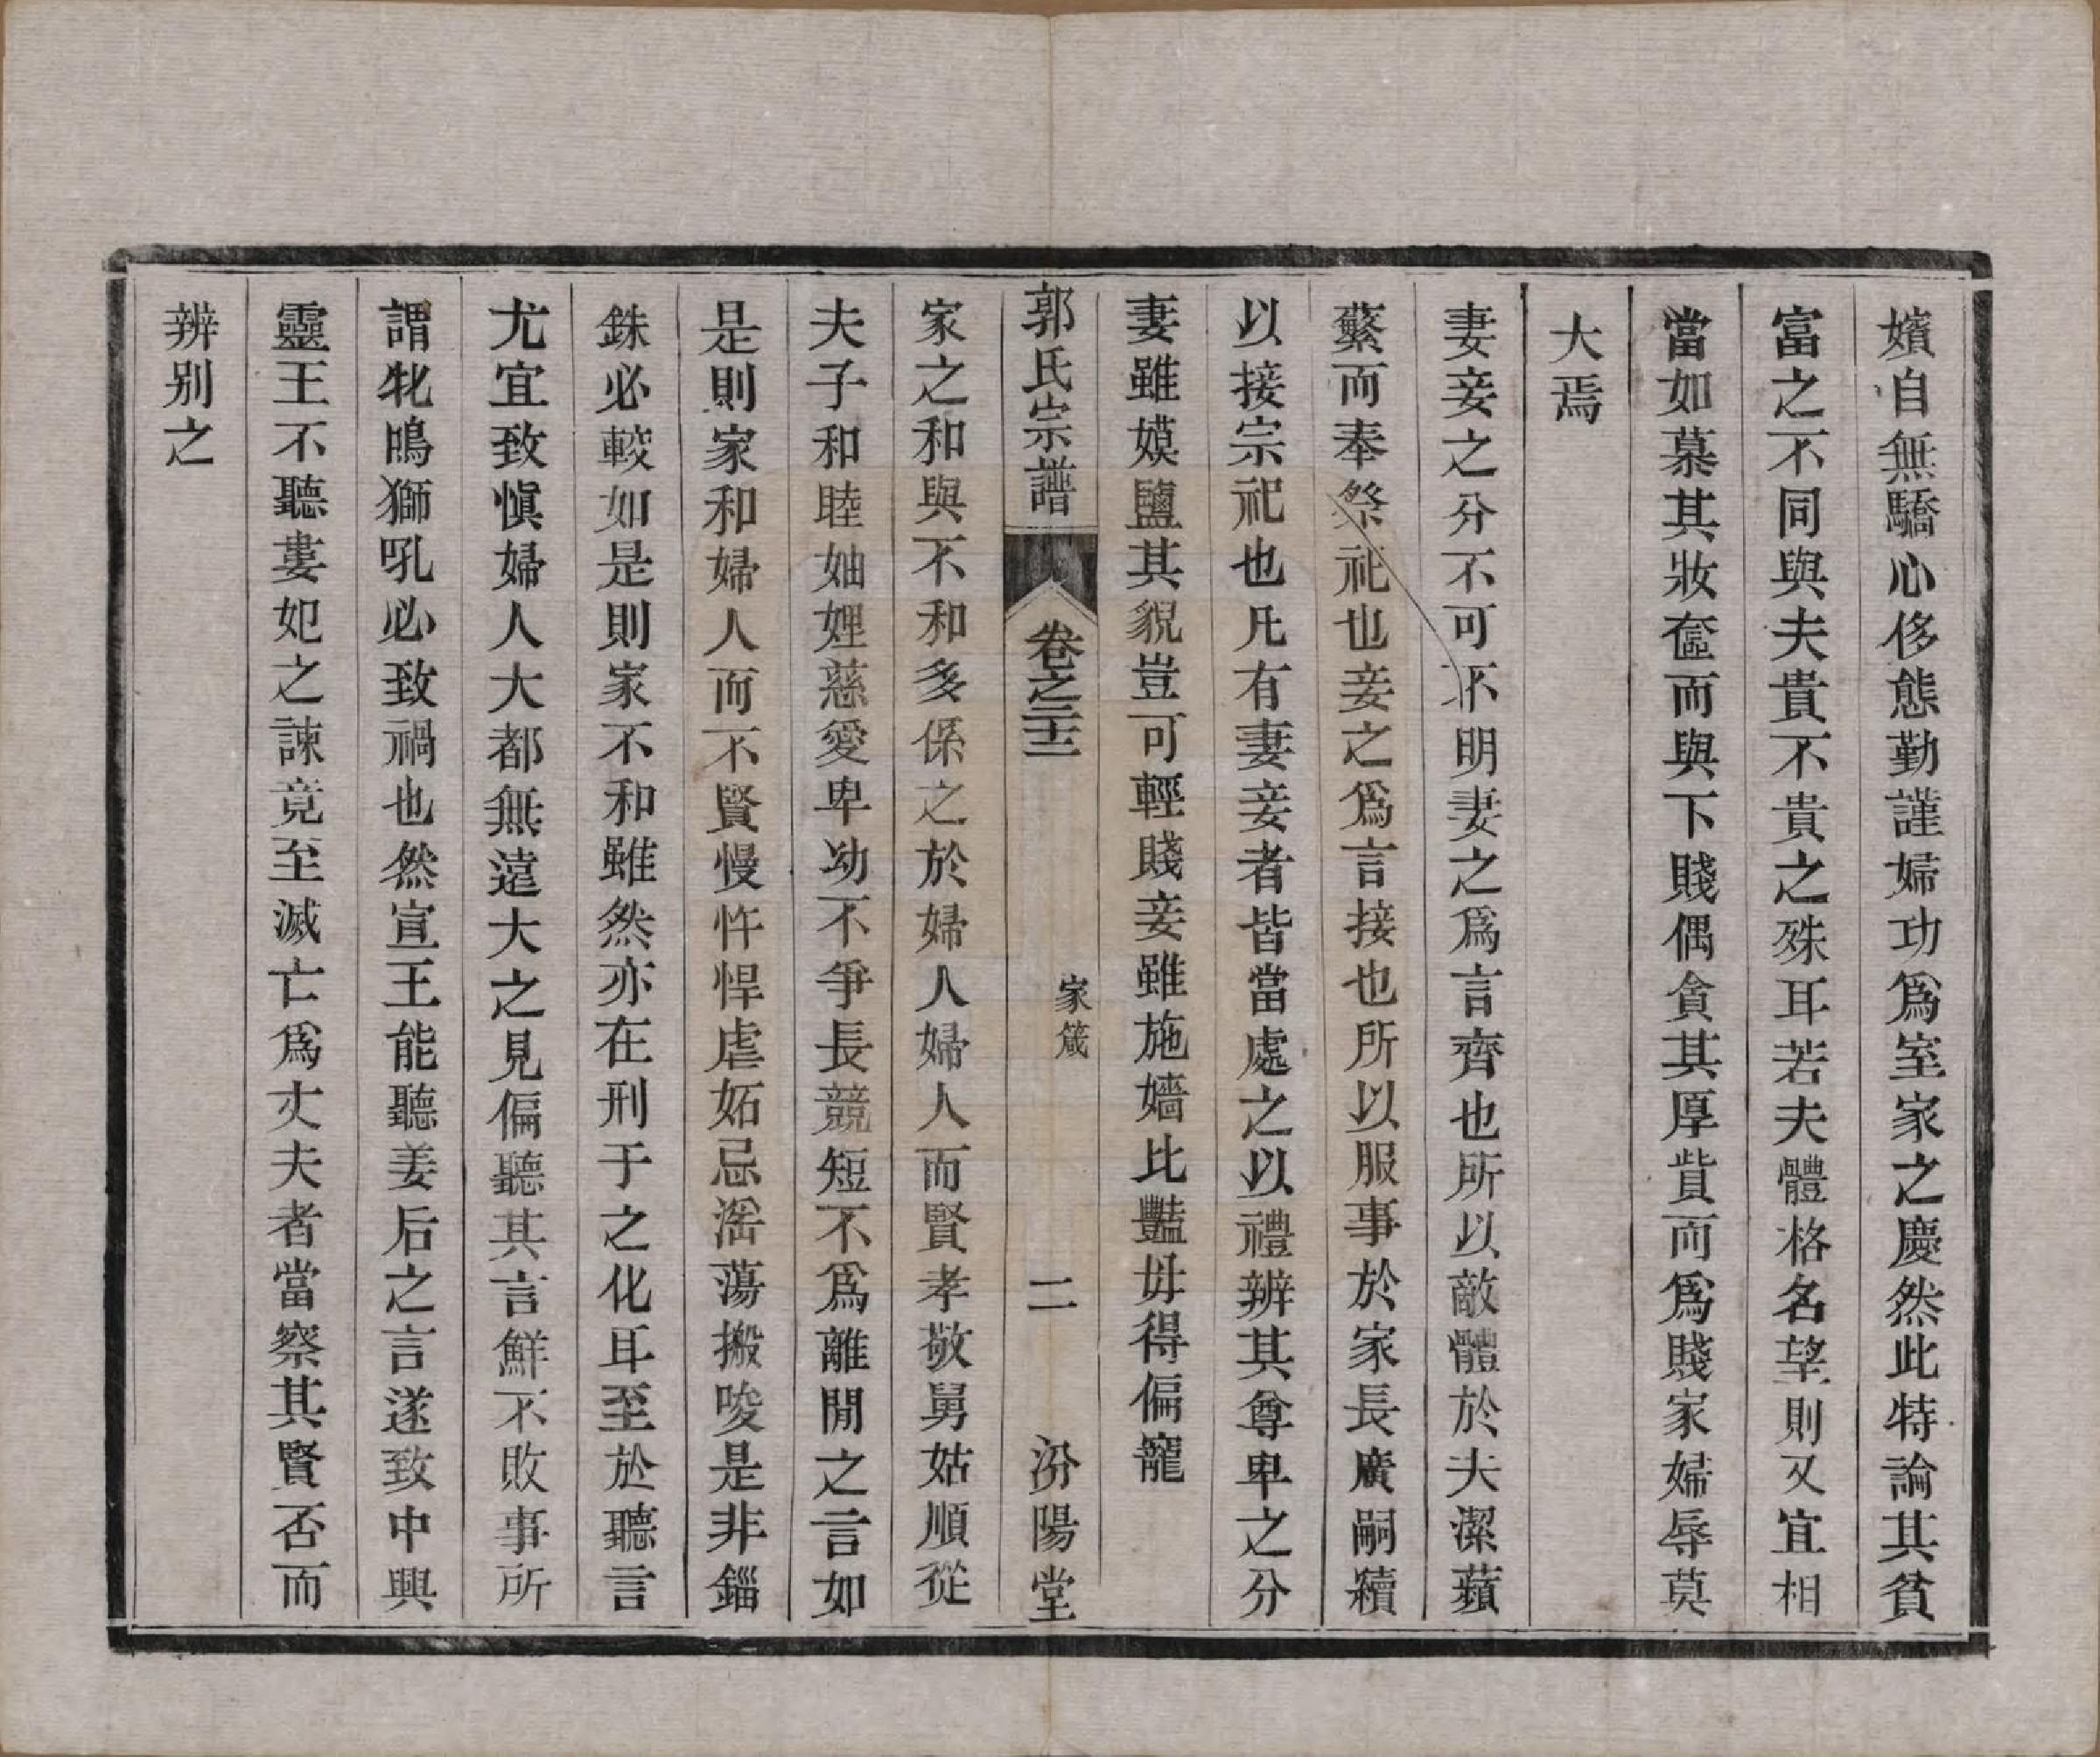 嬪自無驕心侈態勤謹婦功爲室家之慶然此特論其貧
富之不同與夫貴不貴之殊耳若夫體格名望則又宜相
當如慕其妝奩而與下賤偶貪其厚貲而爲賤家婦辱莫
大焉
妻妾之分不可不明妻之爲言齊也所以敵體於夫潔蘋
蘩而奉祭祀也妾之爲言接也所以服事於家長廣嗣續
以接宗祀也凡有妻妾者皆當處之以禮辨其尊卑之分
妻雖嫫鹽其貌豈可輕賤妾雖施嬙比豔毋得偏寵
郭氏宗譜 卷之二十二 家箴 二 汾陽堂
家之和與不和多係之於婦人婦人而賢孝敬舅姑順從
夫子和睦妯娌慈愛卑幼不爭長競短不爲離間之言如
是則家和婦人而不賢慢忤悍虐妬忌滛蕩搬唆是非錙
銖必較如是則家不和雖然亦在刑于之化耳至於聽言
尤宜致愼婦人大都無遠大之見偏聽其言鮮不敗事所
謂牝鳴獅吼必致禍也然宣王能聽姜后之言遂致中興
靈王不聽婁妃之諫竟至滅亡爲丈夫者當察其賢否而
辨别之